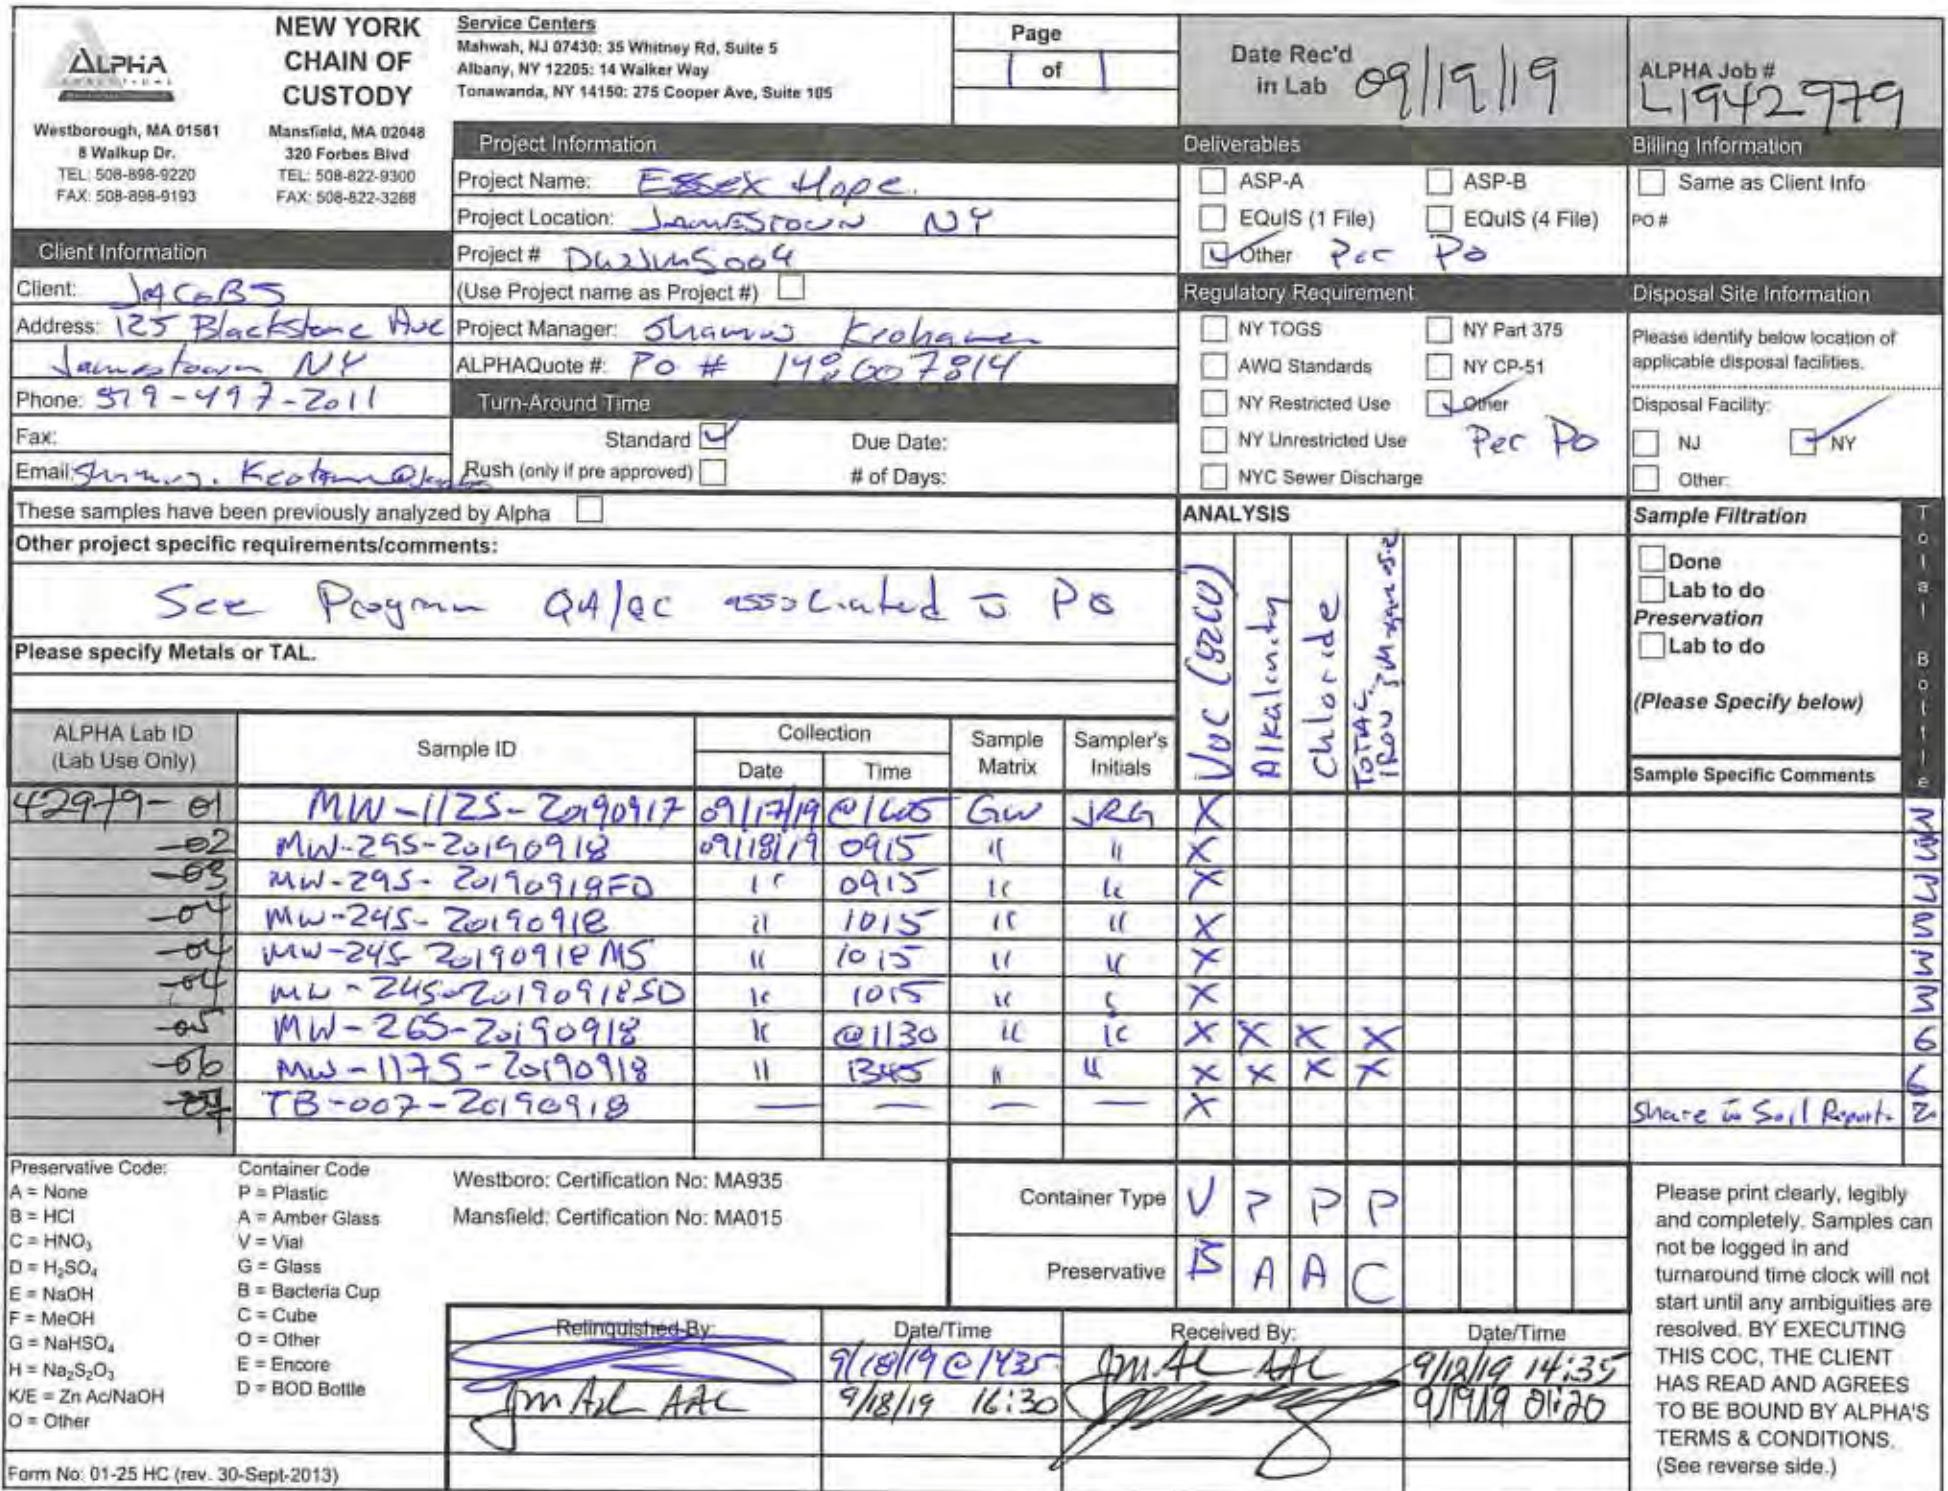 ALPHA
ANALYTICAL
NEW YORK
CHAIN OF
CUSTODY
Westborough, MA 01581
8 Walkup Dr.
TEL: 508-898-9220
FAX: 508-898-9193
Mansfield, MA 02048
320 Forbes Blvd
TEL: 508-822-9300
FAX: 508-822-3288
Service Centers
Mahwah, NJ 07430: 35 Whitney Rd, Suite 5
Albany, NY 12205: 14 Walker Way
Tonawanda, NY 14150: 275 Cooper Ave, Suite 105
Page
1 of 1
Date Rec'd
in Lab 09/19/19
ALPHA Job #
L1942979
Project Information
Project Name: Essex Hope.
Project Location: Jamestown NY
Project #
(Use Project name as Project #)
Project Manager: Shamus Keohane
ALPHAQuote #: PO # 148607814
Turn-Around Time
Standard
Due Date:
Rush (only if pre approved)
# of Days:
Client Information
Client: JACOBS
Address: 125 Blackstone Ave
Jamestown NY
Phone: 979-497-2011
Fax:
Email:
Deliverables
ASP-A
ASP-B
EQuIS (1 File)
EQuIS (4 File)
Other Per Po
Regulatory Requirement
NY TOGS
NY Part 375
AWQ Standards
NY CP-51
NY Restricted Use
Other
NY Unrestricted Use
Per Po
NYC Sewer Discharge
Billing Information
Same as Client Info
PO #
Disposal Site Information
Please identify below location of
applicable disposal facilities.
Disposal Facility:
NJ
NY
Other:
These samples have been previously analyzed by Alpha
Other project specific requirements/comments:
See Program QA/QC associated PO
Please specify Metals or TAL.
ANALYSIS
VOC (8260)
Alkalinity
Chloride
TOTAL
IRON Manganese
Sample Filtration
Done
Lab to do
Preservation
Lab to do
(Please Specify below)
Sample Specific Comments
Total Bottle
ALPHA Lab ID
(Lab Use Only)
Sample ID
Collection
Date
Time
Sample
Matrix
Sampler's
Initials
42979-01 MW-112S-20190917 09/17/19 @1605 GW JRG X 3
-02 MW-29S-20190918 09/18/19 0915 " " X 3
-03 MW-29S-20190918FD " 0915 " " X 3
-04 MW-24S-20190918 " 1015 " " X 3
-04 MW-24S-20190918MS " 1015 " " X 3
-04 MW-24S-20190918SD " 1015 " " X 3
-05 MW-26S-20190918 " @1130 " " X X X X 6
-06 MW-117S-20190918 " 1345 " " X X X X 6
-07 TB-007-20190918 — — — — X Share Soil Report. 2
Preservative Code:
A = None
B = HCl
C = HNO3
D = H2SO4
E = NaOH
F = MeOH
G = NaHSO4
H = Na2S2O3
K/E = Zn Ac/NaOH
O = Other
Container Code
P = Plastic
A = Amber Glass
V = Vial
G = Glass
B = Bacteria Cup
C = Cube
O = Other
E = Encore
D = BOD Bottle
Westboro: Certification No: MA935
Mansfield: Certification No: MA015
Container Type V P P P
Preservative B A A C
Relinquished By:
Date/Time
Received By:
Date/Time
9/18/19 @ 1435
AAL
14:35
AAL
9/18/19 16:30
9/19/19 01:20
Please print clearly, legibly
and completely. Samples can
not be logged in and
turnaround time clock will not
start until any ambiguities are
resolved. BY EXECUTING
THIS COC, THE CLIENT
HAS READ AND AGREES
TO BE BOUND BY ALPHA'S
TERMS & CONDITIONS.
(See reverse side.)
Form No: 01-25 HC (rev. 30-Sept-2013)